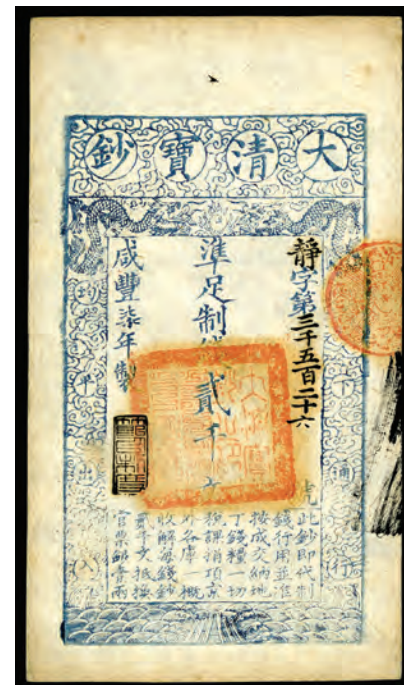 大清寶鈔
靜字第三千五百二十六
準足制錢貳千文
咸豐柒年製
下通行
均平出入
虎
此鈔即代制
錢行用並准
按成交納地
丁錢糧一切
稅課捐項京
外各庫一概
收解每錢鈔
貳千文抵換
官票銀壹兩